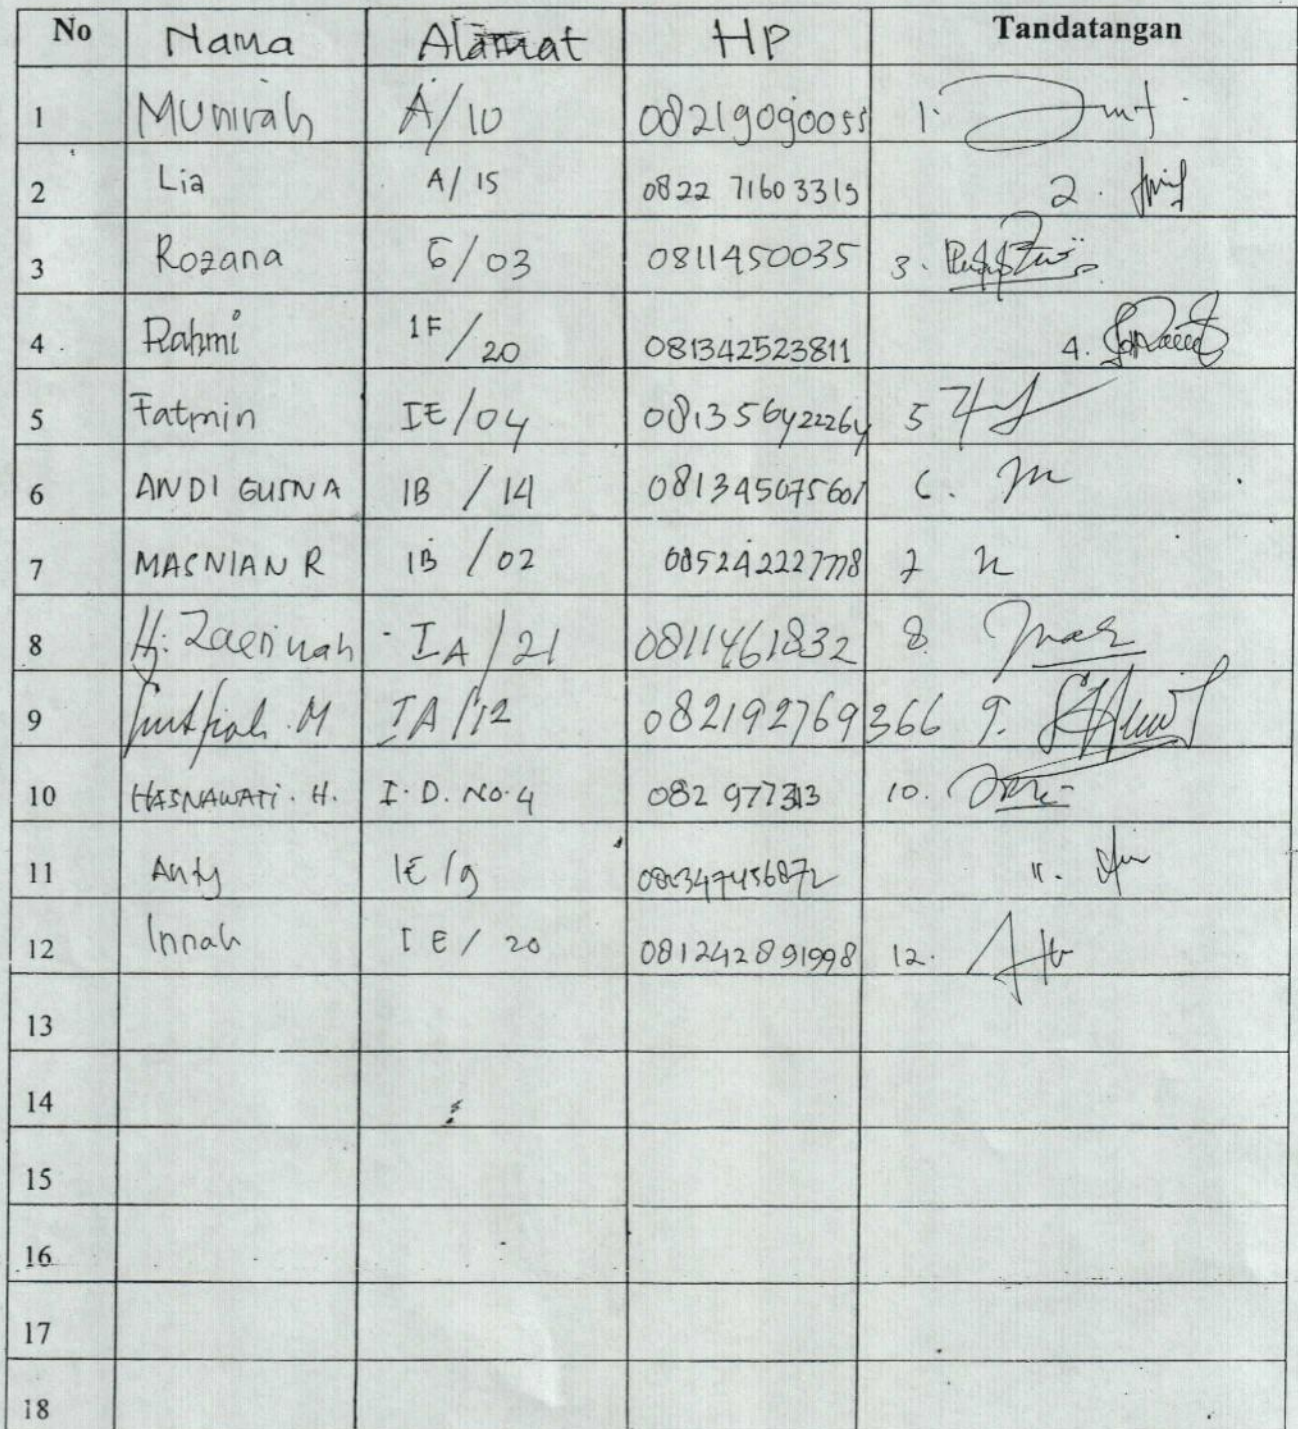 No Nama Alamat HP Tandatangan
1 Munirah A/10 082190900055 1.
2 Lia A/15 0822 7160 3315 2.
3 Rozana 6/03 0811450035 3.
4. Rahmi 1F/20 081342523811 4.
5 Fatmin IE/04 081356422264 5
6 ANDI GUSNA IB / 14 081345075601 6.
7 MASNIAN R IB / 02 085242227778 7
8 Hj. IA/21 0811461832 8.
9 IA/12 082192769366 9.
10 HASNAWATI. H. I.D. NO.4 082 977313 10.
11 Anty IE/9 11.
12 Innah IE/20 081242891998 12.
13
14
15
16
17
18